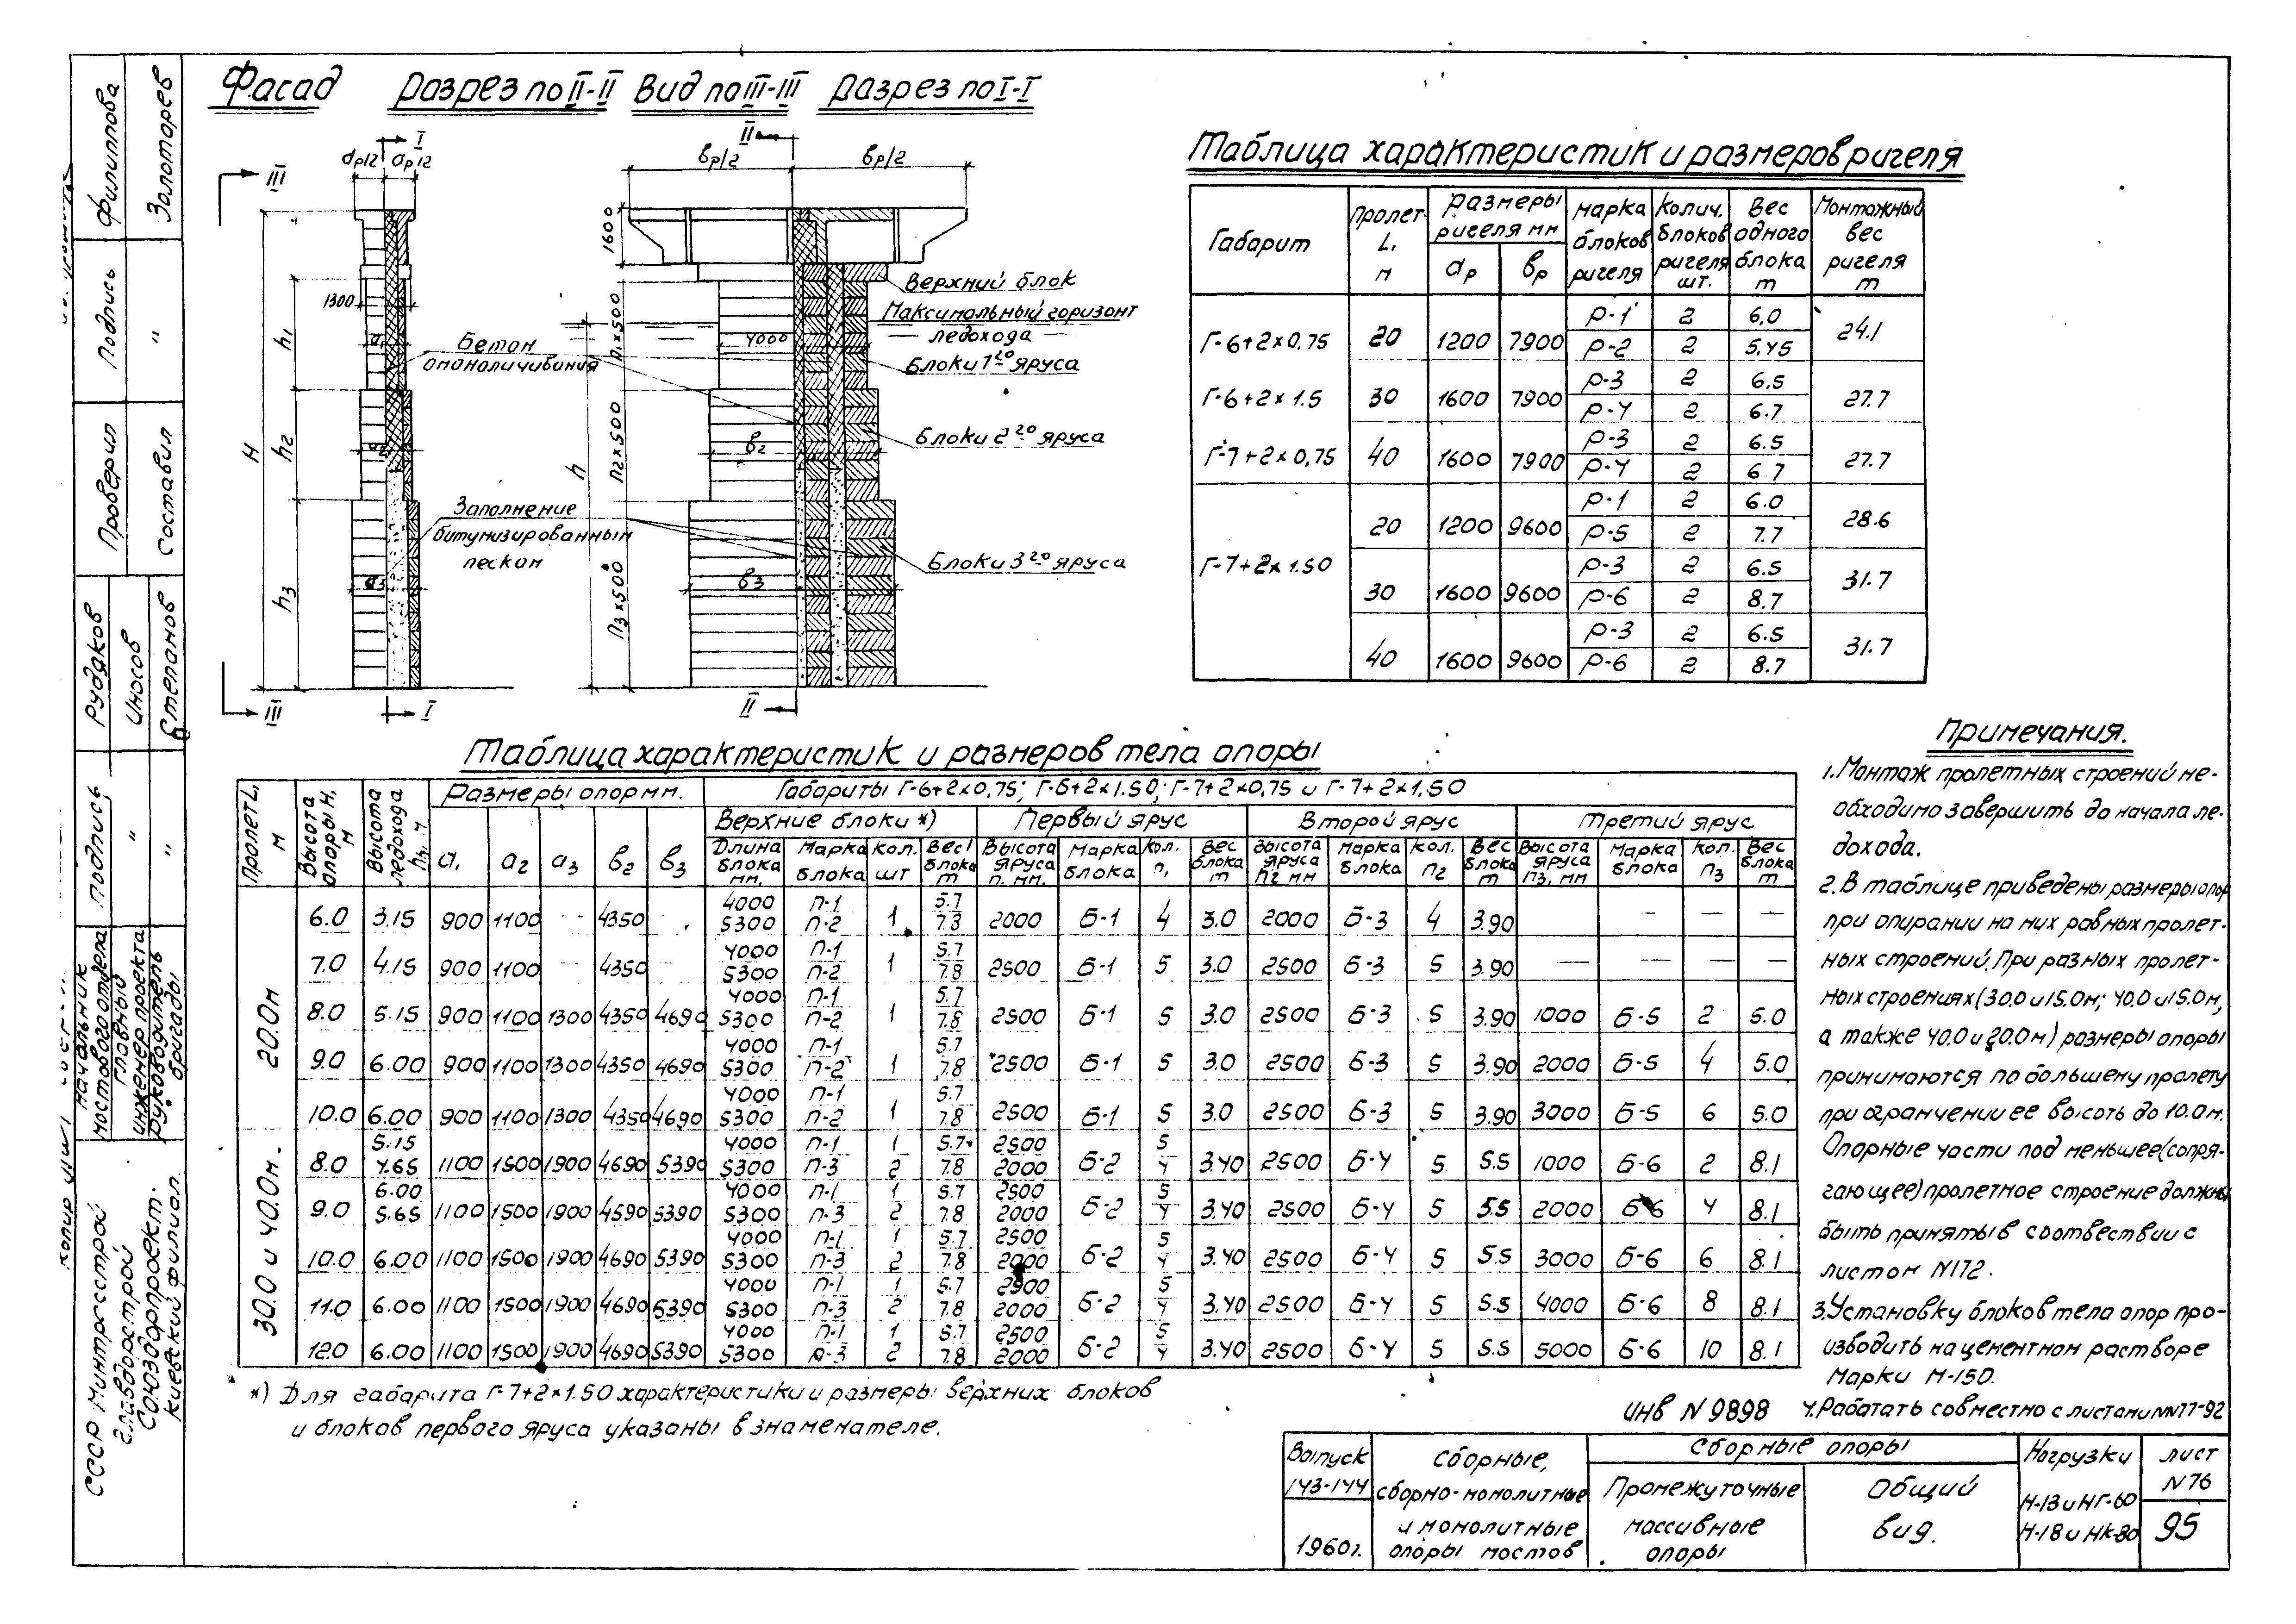 Фасад
Разрез по II-II
Вид по III-III
Разрез по I-I
Таблица характеристик и размеров ригеля
Габарит | Пролет L, м | Размеры ригеля мм | aр | вр | Марка блоков ригеля | Колич. блоков ригеля шт. | Вес одного блока т | Монтажный вес ригеля т
Г-6+2×0,75 | 20 | 1200 | 7900 | Р-1 | 2 | 6,0 | 24.1
Р-2 | 2 | 5,45
Г-6+2×1.5 | 30 | 1600 | 7900 | Р-3 | 2 | 6.5 | 27.7
Р-4 | 2 | 6.7
Г-7+2×0,75 | 40 | 1600 | 7900 | Р-3 | 2 | 6.5 | 27.7
Р-4 | 2 | 6.7
Г-7+2×1.50 | 20 | 1200 | 9600 | Р-1 | 2 | 6.0 | 28.6
Р-5 | 2 | 7.7
30 | 1600 | 9600 | Р-3 | 2 | 6.5 | 31.7
Р-6 | 2 | 8.7
40 | 1600 | 9600 | Р-3 | 2 | 6.5 | 31.7
Р-6 | 2 | 8.7
III
I
II
aр/2
aр/2
вр/2
вр/2
1600
1300
4000
H
h1
h2
h3
h
a1
a2
a3
в2
в3
n1×500
n2×500
n3×500
Верхний блок
Максимальный горизонт
ледохода
Блоки 1го яруса
Бетон
омоноличивания
Блоки 2го яруса
Заполнение
битумизированным
песком
Блоки 3го яруса
III
I
II
Таблица характеристик и размеров тела опоры
Пролет L, м | Высота опоры H, м | Высота ледохода h, м | Размеры опор мм. | Габариты Г-6+2×0,75; Г-6+2×1.50; Г-7+2×0,75 и Г-7+2×1,50
a1 | a2 | a3 | в2 | в3 | Верхние блоки *) | Первый ярус | Второй ярус | Третий ярус
Длина блока мм. | Марка блока | Кол. шт | Вес 1 блока т | Высота яруса n, мм. | Марка блока | Кол. n1 | Вес блока т | Высота яруса n2 мм | Марка блока | Кол. n2 | Вес блока т | Высота яруса n3, мм | Марка блока | Кол. n3 | Вес блока т
20.0м
6.0 | 3.15 | 900 | 1100 | - | 4350 | - | 4000/5300 | П-1/П-2 | 1 | 5.7/7.8 | 2000 | Б-1 | 4 | 3.0 | 2000 | Б-3 | 4 | 3.90 | — | — | —
7.0 | 4.15 | 900 | 1100 | - | 4350 | - | 4000/5300 | П-1/П-2 | 1 | 5.7/7.8 | 2500 | Б-1 | 5 | 3.0 | 2500 | Б-3 | 5 | 3.90 | — | — | — | —
8.0 | 5.15 | 900 | 1100 | 1300 | 4350 | 4690 | 4000/5300 | П-1/П-2 | 1 | 5.7/7.8 | 2500 | Б-1 | 5 | 3.0 | 2500 | Б-3 | 5 | 3.90 | 1000 | Б-5 | 2 | 5.0
9.0 | 6.00 | 900 | 1100 | 1300 | 4350 | 4690 | 4000/5300 | П-1/П-2 | 1 | 5.7/7.8 | 2500 | Б-1 | 5 | 3.0 | 2500 | Б-3 | 5 | 3.90 | 2000 | Б-5 | 4 | 5.0
10.0 | 6.00 | 900 | 1100 | 1300 | 4350 | 4690 | 4000/5300 | П-1/П-2 | 1 | 5.7/7.8 | 2500 | Б-1 | 5 | 3.0 | 2500 | Б-3 | 5 | 3.90 | 3000 | Б-5 | 6 | 5.0
30.0 и 40.0м.
8.0 | 5.15/4.65 | 1100 | 1500 | 1900 | 4690 | 5390 | 4000/5300 | П-1/П-3 | 1/2 | 5.7/7.8 | 2500/2000 | Б-2 | 5/4 | 3.40 | 2500 | Б-4 | 5 | 5.5 | 1000 | Б-6 | 2 | 8.1
9.0 | 6.00/5.65 | 1100 | 1500 | 1900 | 4590 | 5390 | 4000/5300 | П-1/П-3 | 1/2 | 5.7/7.8 | 2500/2000 | Б-2 | 5/4 | 3.40 | 2500 | Б-4 | 5 | 5.5 | 2000 | Б-6 | 4 | 8.1
10.0 | 6.00 | 1100 | 1500 | 1900 | 4690 | 5390 | 4000/5300 | П-1/П-3 | 1/2 | 5.7/7.8 | 2500/2000 | Б-2 | 5/4 | 3.40 | 2500 | Б-4 | 5 | 5.5 | 3000 | Б-6 | 6 | 8.1
11.0 | 6.00 | 1100 | 1500 | 1900 | 4690 | 5390 | 4000/5300 | П-1/П-3 | 1/2 | 5.7/7.8 | 2500/2000 | Б-2 | 5/4 | 3.40 | 2500 | Б-4 | 5 | 5.5 | 4000 | Б-6 | 8 | 8.1
12.0 | 6.00 | 1100 | 1500 | 1900 | 4690 | 5390 | 4000/5300 | П-1/П-3 | 1/2 | 5.7/7.8 | 2500/2000 | Б-2 | 5/4 | 3.40 | 2500 | Б-4 | 5 | 5.5 | 5000 | Б-6 | 10 | 8.1
*) Для габарита Г-7+2×1.50 характеристики и размеры верхних блоков
и блоков первого яруса указаны в знаменателе.
Примечания.
1. Монтаж пролетных строений не-
обходимо завершить до начала ле-
дохода.
2. В таблице приведены размеры опор
при опирании на них равных пролет-
ных строений. При разных пролет-
ных строениях (30.0 и 15.0м; 40.0 и 15.0м,
а также 40.0 и 20.0м) размеры опоры
принимаются по большему пролету
при огранчении ее высоть до 10.0м.
Опорные части под меньшее (сопря-
гающее) пролетное строение должны
быть приняты в соотвествии с
листом N172.
3. Установку блоков тела опор про-
изводить на цементном растворе
Марки М-150.
4. Рабатать совместно с листами NN77-92
инв N 9898
Выпуск
143-144
1960г.
Сборные,
сборно-монолитные
и монолитные
опоры мостов
Сборные опоры
Промежуточные
массивные
опоры
Общий
вид.
Нагрузки
Н-13 и НГ-60
Н-18 и НК-80
лист
N76
95
Филиппова
Золоторев
Подпись
"
Проверил
Составил
Рудаков
Иносов
Степанов
подпись
"
"
Начальник
мостового отдела
Главный
инженер проекта
Руководитель
бригады
СССР Минтрансстрой
Главдорстрой
Союздорпроект
Киевский филиал.